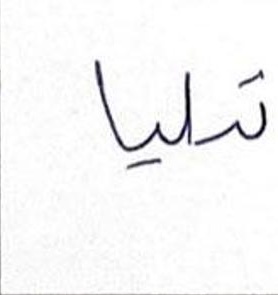 تدليا